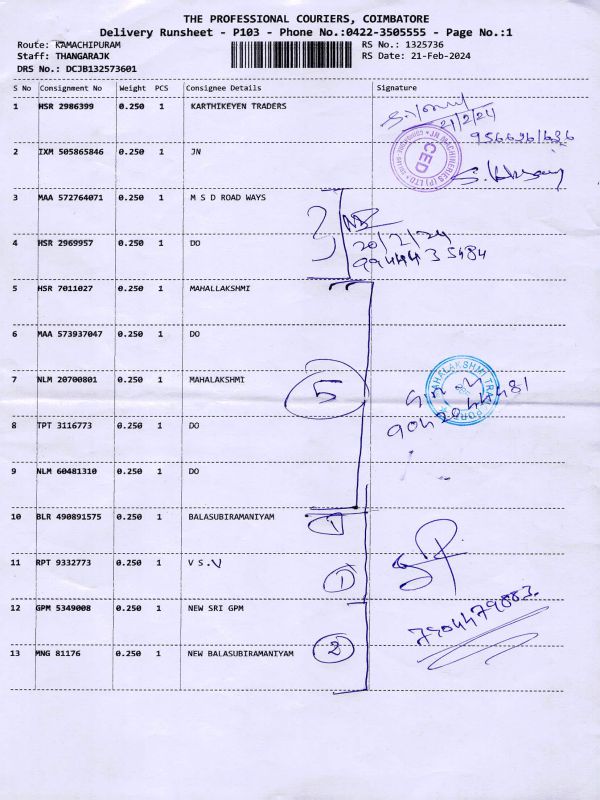 THE PROFESSIONAL COURIERS, COIMBATORE
Delivery Runsheet - P103 - Phone No.:0422-3505555 - Page No.:1
Route: KAMACHIPURAM RS No.: 1325736
Staff: THANGARAJK RS Date: 21-Feb-2024
DRS No.: DCJB132573601
S No Consignment No Weight PCS Consignee Details Signature
1 HSR 2986399 0.250 1 KARTHIKEYEN TRADERS
21/2/24
2 IXM 505865846 0.250 1 JN
JN MACHINERIES (P) LTD
CED
3 MAA 572764071 0.250 1 M S D ROAD WAYS
20/2/24
4 HSR 2969957 0.250 1 DO
99444 35484
5 HSR 7011027 0.250 1 MAHALLAKSHMI
6 MAA 573937047 0.250 1 DO
7 NLM 20700801 0.250 1 MAHALAKSHMI
5
MAHALAKSHMI
8 TPT 3116773 0.250 1 DO
9 NLM 60481310 0.250 1 DO
10 BLR 490891575 0.250 1 BALASUBIRAMANIYAM 1
11 RPT 9332773 0.250 1 V S.V
1
12 GPM 5349008 0.250 1 NEW SRI GPM
7904479883.
13 MNG 81176 0.250 1 NEW BALASUBIRAMANIYAM 2